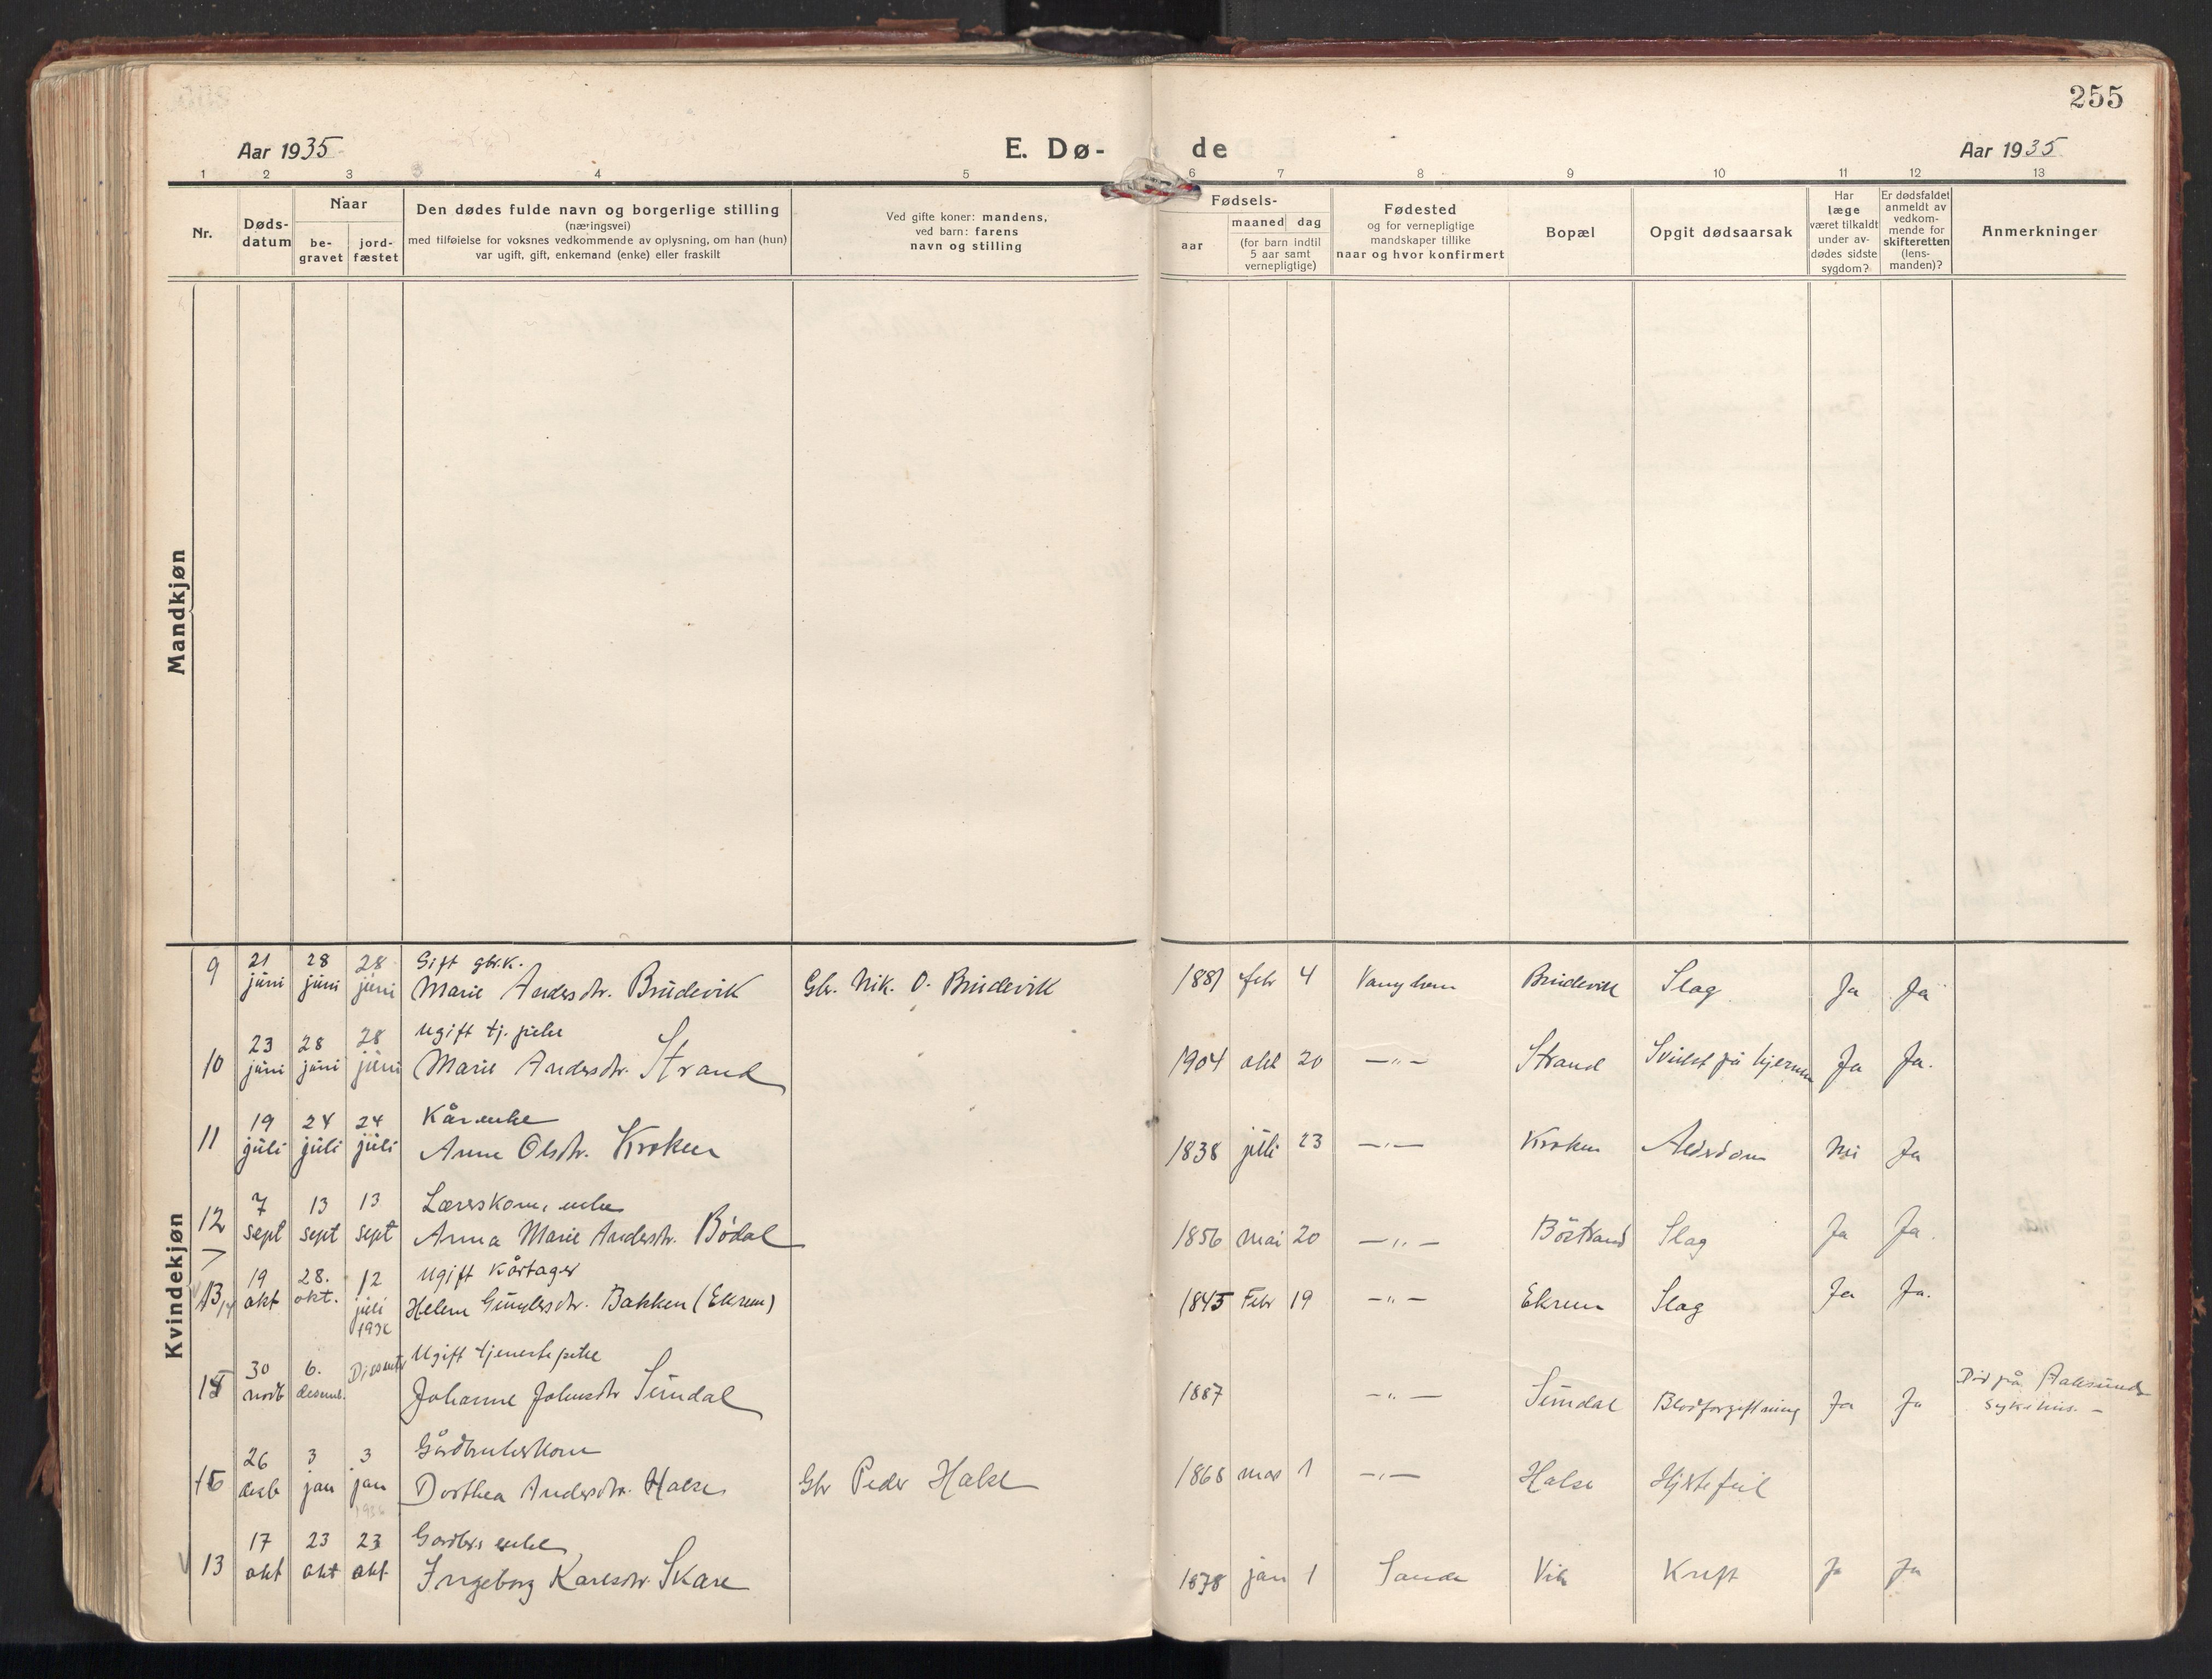 255
Aar 1935
E. Dø-
de
Aar 1935
1 2 3 4 5 6 7 8 9 10 11 12 13
Nr.
Døds-
datum
Naar
be-
gravet
jord-
fæstet
Den dødes fulde navn og borgerlige stilling
(næringsvei)
med tilføielse for voksnes vedkommende av oplysning, om han (hun)
var ugift, gift, enkemand (enke) eller fraskilt
Ved gifte koner: mandens,
ved barn: farens
navn og stilling
Fødsels-
aar
maaned dag
(for barn indtil
5 aar samt
vernepligtige)
Fødested
og for vernepligtige
mandskaper tillike
naar og hvor konfirmert
Bopæl
Opgit dødsaarsak
Har
læge
været tilkaldt
under av-
dødes sidste
sygdom?
Er dødsfaldet
anmeldt av
vedkom-
mende for
skifteretten
(lens-
manden)?
Anmerkninger
Mandkjøn
Kvindekjøn
9 21 28 28 Gift gbr.k.
juni juni juni Marie Andersdtr. Brudevik Gbr. Nik. O. Brudevik 1881 febr 4 Brudevik Slag Ja Ja
23 28 28 Ugift tj. pike
10 juni juni juni Marie Andersdtr. Strand 1904 okt 20 —„— Strand Svulst på hjernen Ja Ja.
19 24 24 Kårenke
11 juli juli juli Anne Olsdtr. Kroken 1838 juli 23 —„— Kroken Alderdom Nei Ja
7 13 13
12 sept sept sept Anna Marie Andersdtr. Bödal 1856 mai 20 —„— Böstrand Slag Ja Ja.
19 28. 12 Ugift kårtager
13 okt okt. juli Helene Bakken (Ekrem) 1845 Febr 19 —„— Ekrem Slag Ja Ja.
1936
30 6. Dissenter Ugift tjenestepike
novb desemb. Johanne Johnsdtr Sundal 1887 —„— Sundal Blodforgiftning Ja Ja Död på Aalesunds
sykehus. —
26 3 3 Gårdbrukerkone
desb jan jan Dorthea Andersdtr. Halse Gbr Peder Halse 1868 mars 1 —„— Halse Hjertefeil
1936
17 23 23 Gardbr. enke
13 okt okt okt Ingeborg Karlsdtr. Skare 1878 jan 1 Sande Vik Kreft Ja Ja